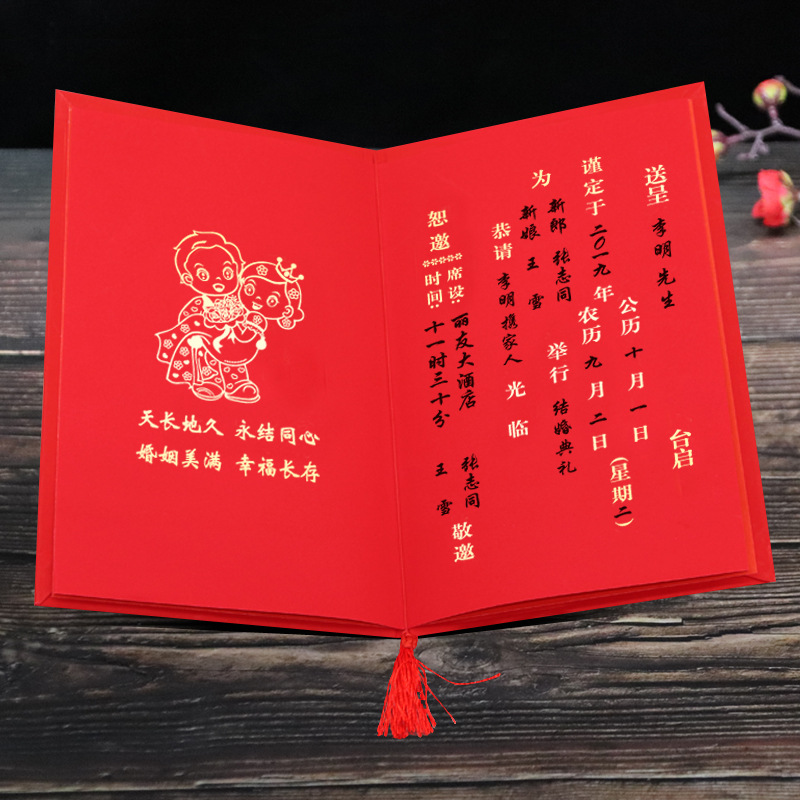 天长地久 永结同心
婚姻美满 幸福长存
送呈 李明先生 台启
谨定于 二〇一九 年 公历 十 月 一 日 (星期二)
农历 九 月 二 日
为 新郎 张志同 新娘 王雪 举行 结婚典礼
恭请 李明携家人 光临
恕邀
席设: 丽友大酒店
时间: 十一时三十分
张志同
王雪
敬邀